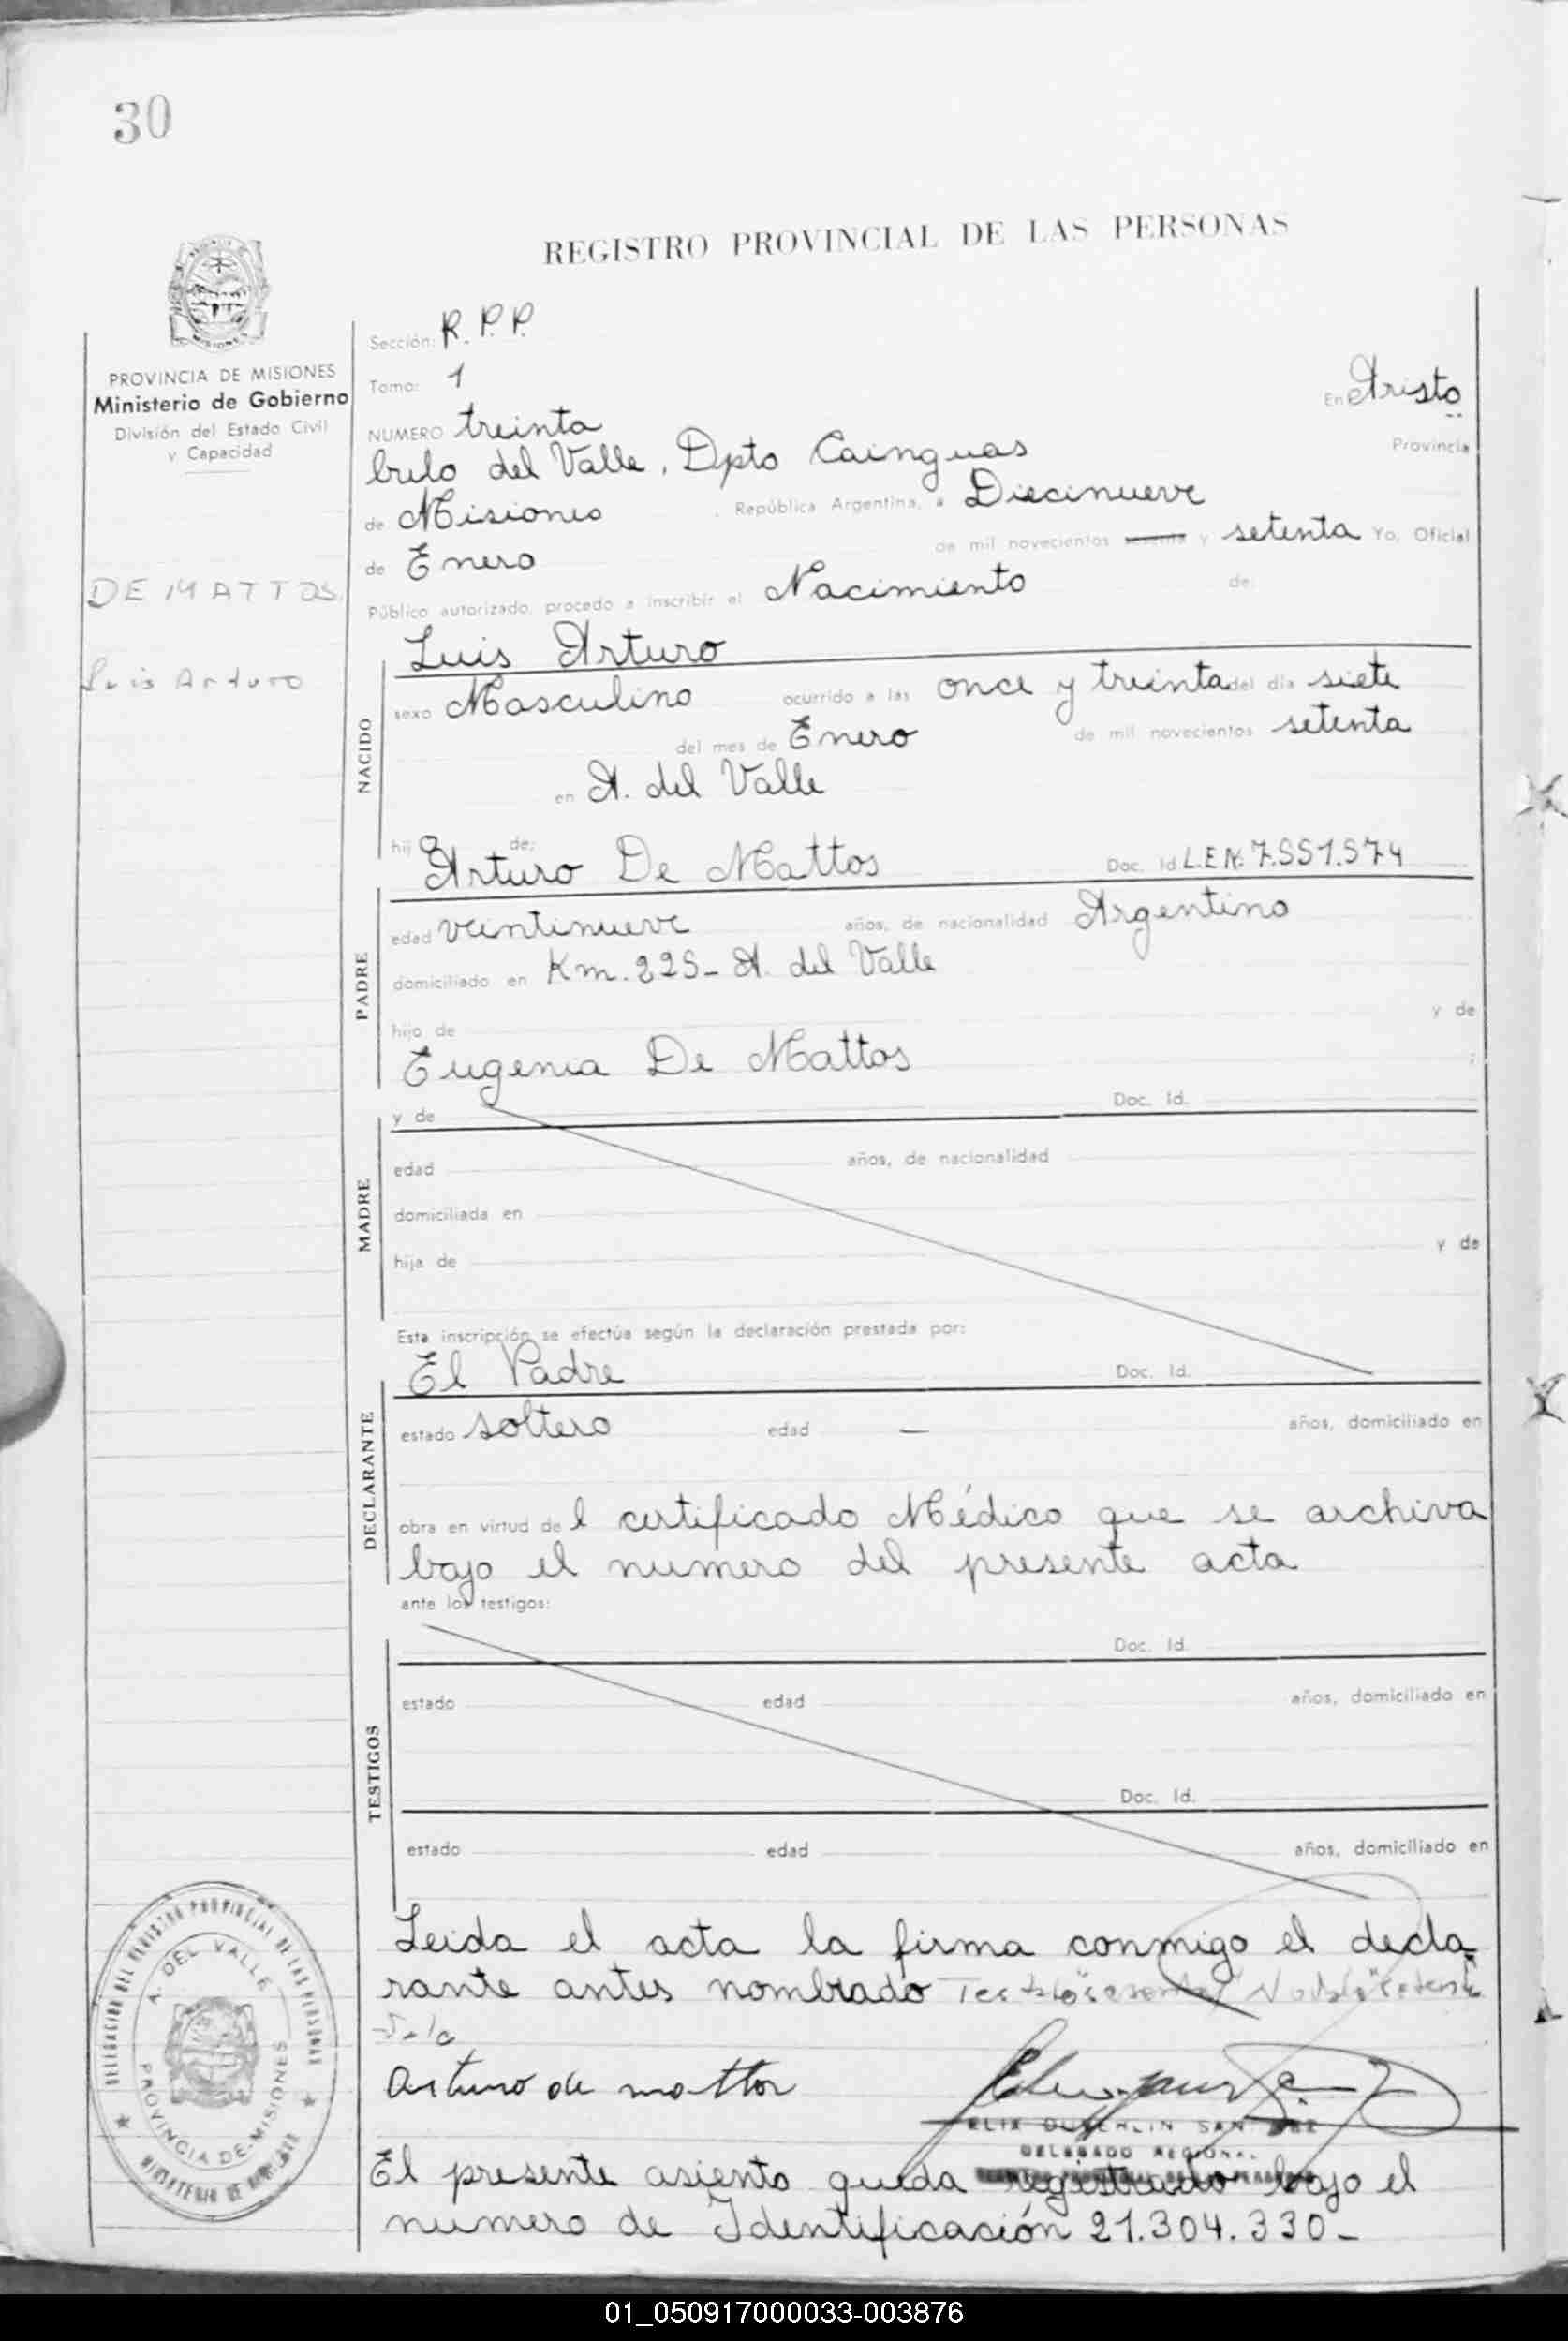 30
REGISTRO PROVINCIAL DE LAS PERSONAS
PROVINCIA DE MISIONES
Ministerio de Gobierno
División del Estado Civil
y Capacidad
DE MATTOS
Luis Arturo
Sección: R.P.P.
Tomo: 1
En Aristo
NUMERO treinta
bulo del Valle, Dpto Cainguas Provincia
de Misiones , República Argentina, a Diecinueve
de Enero de mil novecientos sesenta y setenta Yo, Oficial
Público autorizado, procedo a inscribir el Nacimiento de
Luis Arturo
NACIDO
sexo Masculino ocurrido a las once y treinta del día siete
del mes de Enero de mil novecientos setenta
en A. del Valle
hijo de:
Arturo De Mattos Doc. Id L.E.N. 7.551.574
PADRE
edad veintinueve años, de nacionalidad Argentino
domiciliado en Km. 225- A. del Valle
hijo de y de
Eugenia De Mattos ;
y de Doc. Id.
MADRE
edad años, de nacionalidad
domiciliada en
hija de y de
Esta inscripción se efectúa según la declaración prestada por:
El Padre Doc. Id.
DECLARANTE
estado soltero edad — años, domiciliado en
obra en virtud del certificado Médico que se archiva
bajo el numero del presente acta
ante los testigos:
Doc. Id.
TESTIGOS
estado edad años, domiciliado en
Doc. Id.
estado edad años, domiciliado en
Leida el acta la firma conmigo el decla-
rante antes nombrado
Arturo de mattos
DELEGADO REGIONAL
El presente asiento queda registrado bajo el
numero de Identificación 21.304.330-
DELEGACION DEL REGISTRO PROVINCIAL DE LAS PERSONAS
A. DEL VALLE
PROVINCIA DE MISIONES
MINISTERIO DE GOBIERNO
01_050917000033-003876